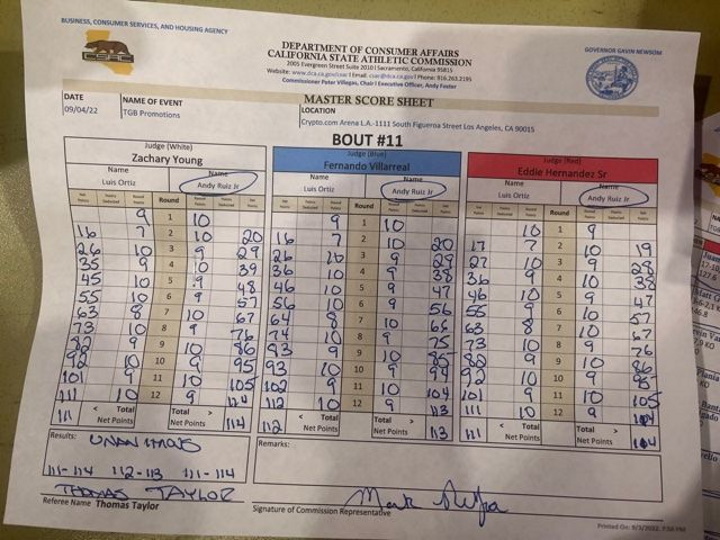 BUSINESS, CONSUMER SERVICES, AND HOUSING AGENCY
GOVERNOR GAVIN NEWSOM
DEPARTMENT OF CONSUMER AFFAIRS
CALIFORNIA STATE ATHLETIC COMMISSION
2005 Evergreen Street Suite 2010 | Sacramento, California 95815
Website: www.dca.ca.gov/csac | Email: csac@dca.ca.gov | Phone: 916.263.2195
Commissioner Peter Villegas, Chair | Executive Officer, Andy Foster
CSAC
MASTER SCORE SHEET
DATE NAME OF EVENT LOCATION
09/04/22 TGB Promotions Crypto.com Arena L.A.-1111 South Figueroa Street Los Angeles, CA 90015
BOUT #11
Judge (White) Judge (Blue) Judge (Red)
Zachary Young Fernando Villarreal Eddie Hernandez Sr
Name Name Name Name Name Name
Luis Ortiz Andy Ruiz Jr Luis Ortiz Andy Ruiz Jr Luis Ortiz Andy Ruiz Jr
Round Round Round
9 1 10 9 1 10 10 1 9
16 7 2 10 20 16 7 2 10 20 17 7 2 10 19
26 10 3 9 29 26 10 3 9 29 27 10 3 9 28
35 9 4 10 39 36 10 4 9 38 36 9 4 10 38
45 10 5 9 48 46 10 5 9 47 46 10 5 9 47
55 10 6 9 57 56 10 6 9 56 55 9 6 10 57
63 8 7 10 67 64 8 7 10 66 63 8 7 10 67
73 10 8 9 76 74 10 8 9 75 73 10 8 9 76
82 9 9 10 86 83 9 9 10 85 82 9 9 10 86
92 10 10 9 95 93 10 10 9 94 92 10 10 9 95
101 9 11 10 105 102 9 11 10 104 101 9 11 10 105
111 10 12 9 114 112 10 12 9 113 111 10 12 9
111 < Total Net Points Total > Net Points 114 112 < Total Net Points Total > Net Points 113 111 < Total Net Points Total > Net Points
Results: UNANIMOUS Remarks:
111-114 112-113 111-114
THOMAS TAYLOR
Referee Name Thomas Taylor Signature of Commission Representative